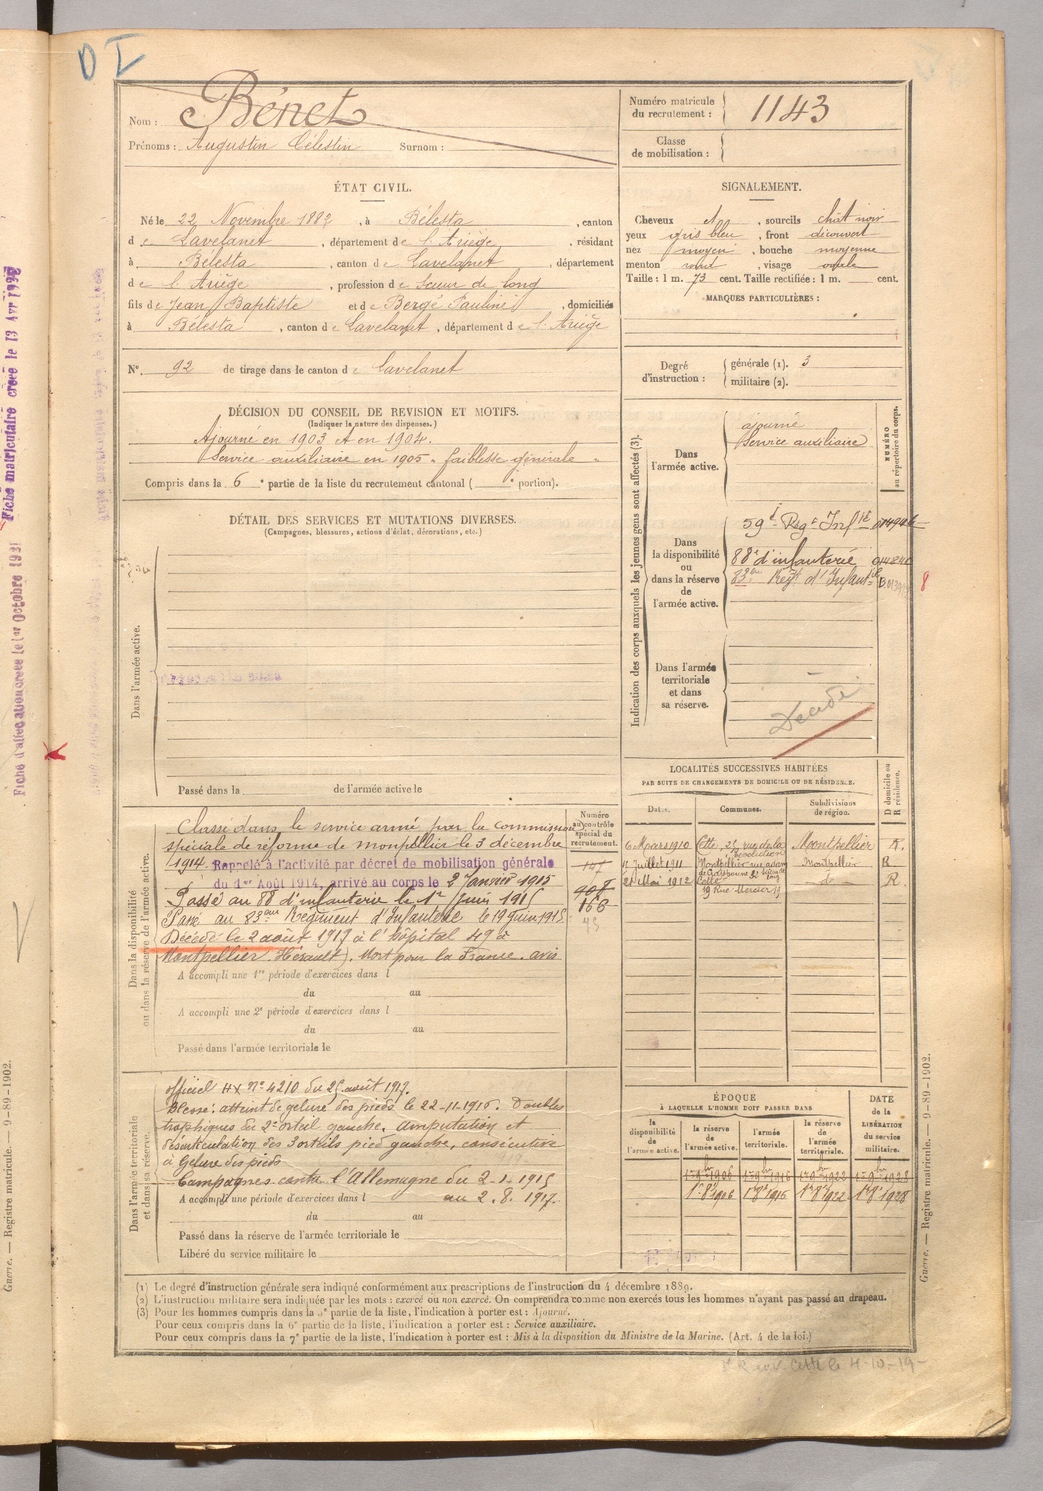 D I
Nom : Bénet
Prénoms : Augustin Célestin Surnom :
Numéro matricule du recrutement : 1143
Classe de mobilisation :
ÉTAT CIVIL.
Né le 22 Novembre 1882, à Bélesta, canton
de Lavelanet, département de l'Ariège, résidant
à Bélesta, canton de Lavelanet, département
de l'Ariège, profession de Scieur de long
fils de Jean Baptiste et de Bergé Pauline, domiciliés
à Bélesta, canton de Lavelanet, département de l'Ariège
N° 92 de tirage dans le canton de Lavelanet
SIGNALEMENT.
Cheveux , sourcils chât noir
yeux gris bleu, front découvert
nez moyen, bouche moyenne
menton rond, visage ovale
Taille : 1 m. 73 cent. Taille rectifiée : 1 m. cent.
MARQUES PARTICULIÈRES :
Degré d'instruction : générale (1). 3
militaire (2).
DÉCISION DU CONSEIL DE REVISION ET MOTIFS.
(Indiquer la nature des dispenses.)
Ajourné en 1903 et en 1904.
Service auxiliaire en 1905 "faiblesse générale"
Compris dans la 6e partie de la liste du recrutement cantonal ( e portion).
Indication des corps auxquels les jeunes gens sont affectés (3).
NUMÉRO au répertoire du corps.
Dans l'armée active.
ajourné
Service auxiliaire
Dans la disponibilité ou dans la réserve de l'armée active.
59e Régt Infie
88e d'infanterie
83eme Régt d'Infantie
8
Dans l'armée territoriale et dans sa réserve.
Décédé
DÉTAIL DES SERVICES ET MUTATIONS DIVERSES.
(Campagnes, blessures, actions d'éclat, décorations, etc.)
Dans l'armée active.
Passé dans la de l'armée active le
LOCALITÉS SUCCESSIVES HABITÉES
PAR SUITE DE CHANGEMENTS DE DOMICILE OU DE RÉSIDENCE.
Dates. Communes. Subdivisions de région. D domicile ou R résidence.
6 Mars 1910 Cette, 25, rue de la Révolution Montpellier R.
Juillet 1911 Montpellier Montpellier R
21 Mai 1912 Cette 19 Rue Mercier 19 d° R
Numéro au contrôle spécial du recrutement.
147
908
168
Dans la disponibilité ou dans la réserve de l'armée active.
Classé dans le service armé par la commission
spéciale de réforme de montpellier le 3 décembre
1914. Rappelé à l'activité par décret de mobilisation générale
du 1er Août 1914, arrivé au corps le 2 Janvier 1915
Passé au 88e d'infanterie le 1er Juin 1915
Passé au 83eme Régiment d'Infanterie le 19 Juin 1915
Décédé le 2 août 1917 à l'hôpital 49 à
Montpellier (Hérault). Mort pour la France. avis
A accompli une 1re période d'exercices dans l
du au
A accompli une 2e période d'exercices dans l
du au
Passé dans l'armée territoriale le
Dans l'armée territoriale et dans sa réserve.
officiel n° 4210 du 25 août 1917.
Blessé : atteint de gelure des pieds le 22-11-1916. Troubles
trophiques du 2e orteil gauche. Amputation et
désarticulation des 3 orteils pied gauche, consécutive
à gelure des pieds
Campagnes contre l'Allemagne du 2-1-1915
A accompli une période d'exercices dans l au 2.8.1917.
du au
Passé dans la réserve de l'armée territoriale le
Libéré du service militaire le
ÉPOQUE
À LAQUELLE L'HOMME DOIT PASSER DANS
la disponibilité de l'armée active. la réserve de l'armée active. l'armée territoriale. la réserve de l'armée territoriale. DATE de la LIBÉRATION du service militaire.
1er 9bre 1906 1er 9bre 1916 1er 9bre 1922 1er 9bre 1928
1er 8bre 1906 1er 8bre 1916 1er 8bre 1922 1er 8bre 1928
(1) Le degré d'instruction générale sera indiqué conformément aux prescriptions de l'instruction du 4 décembre 1889.
(2) L'instruction militaire sera indiquée par les mots : exercé ou non exercé. On comprendra comme non exercés tous les hommes n'ayant pas passé au drapeau.
(3) Pour les hommes compris dans la 5e partie de la liste, l'indication à porter est : Ajourné.
Pour ceux compris dans la 6e partie de la liste, l'indication à porter est : Service auxiliaire.
Pour ceux compris dans la 7e partie de la liste, l'indication à porter est : Mis à la disposition du Ministre de la Marine. (Art. 4 de la loi.)
Cette le 4-10-19
Guerre. — Registre matricule. — 9-89-1902.
Guerre. — Registre matricule. — 9-89-1902.
Fiche d'allocation créée le 1er Octobre 1931
Fiche matriculaire créée le 13 Avr 1936